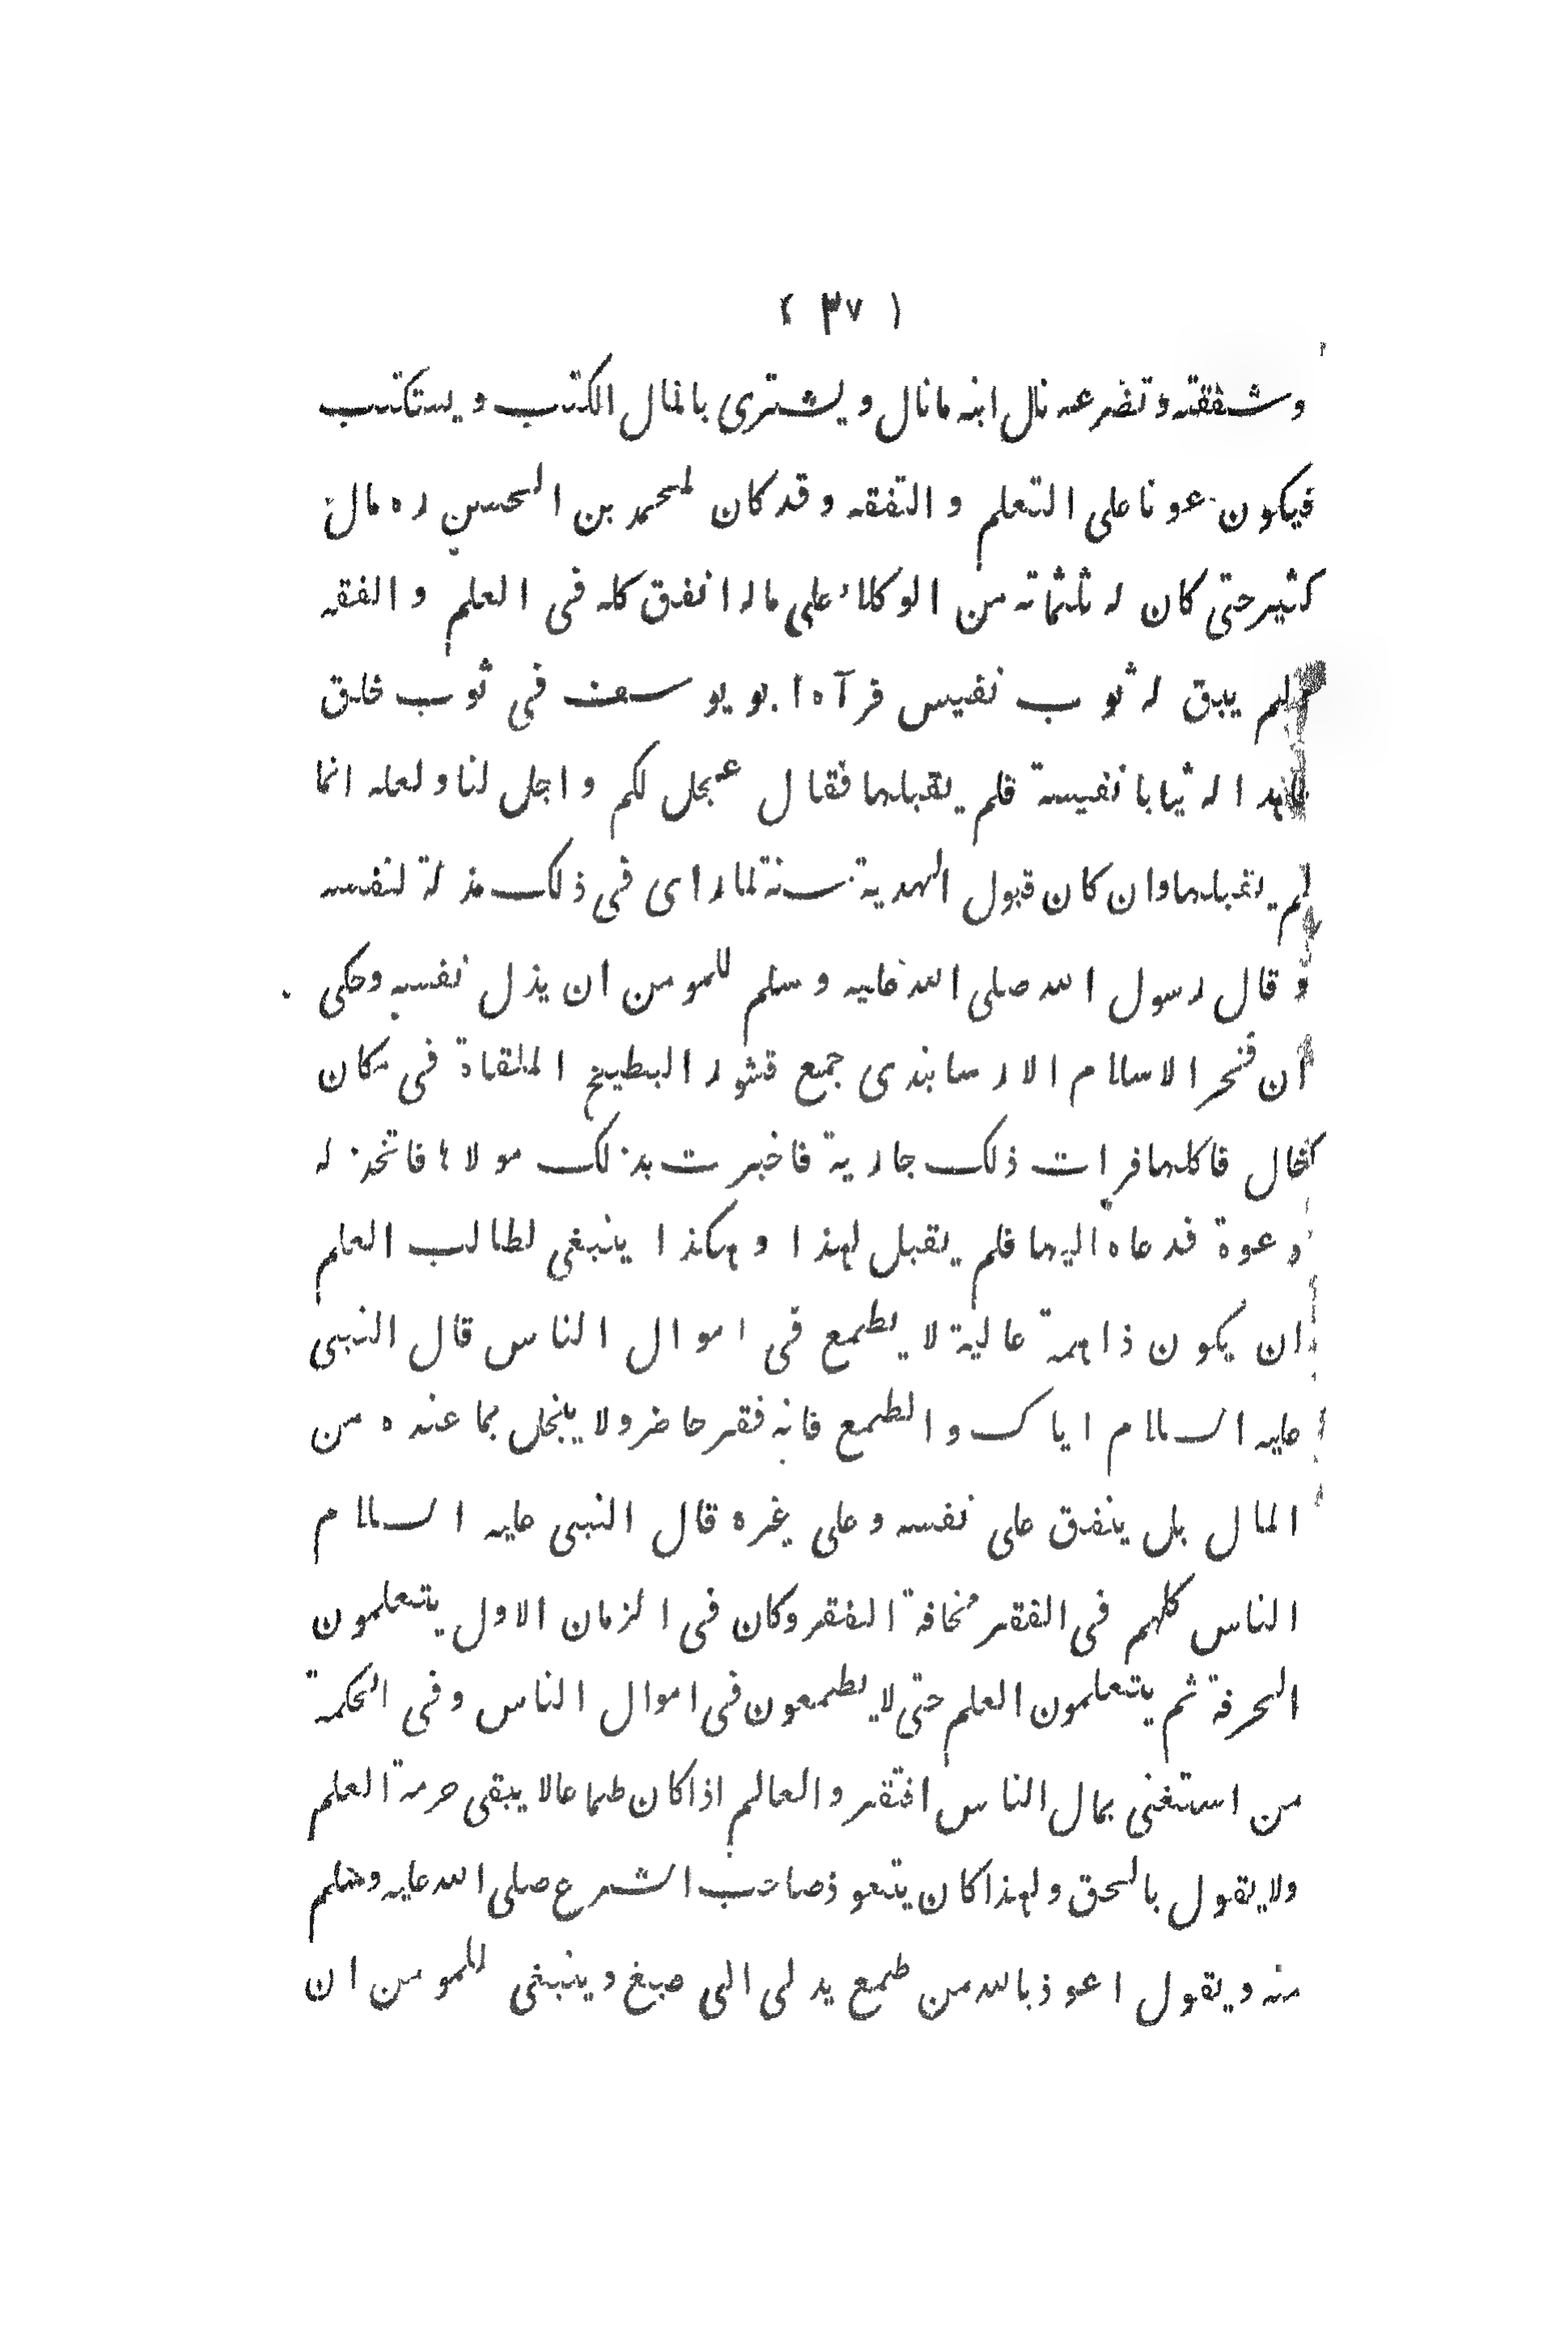 ( ٣٧ )
وشفقته وتضرعه نال ابنه مانال ويشترى بالمال الكتب ويستكتب
فيكون عونا على التعلم والتفقه وقد كان لمحمد بن الحسن ره مال
كثير حتى كان له ثلثمائة من الوكلاء على ماله انفق كله فى العلم والفقه
ولم يبق له ثوب نفيس فرآه ابو يوسف فى ثوب خلق
فاهدا له ثيابا نفيسة فلم يقبلها فقال عجل لكم واجل لنا ولعله انما
لم يقبلها وان كان قبول الهدية سنة لما راى فى ذلك مذلة لنفسه
و قال رسول الله صلى الله عليه وسلم للمومن ان يذل نفسه وحكى
ان فخر الاسلام الارسابندى جمع قشور البطيخ الملقاة فى مكان
خال فاكلها فرات ذلك جارية فاخبرت بذلك مولاها فاتخذ له
دعوة فدعاه اليها فلم يقبل لهذا وهكذا ينبغى لطالب العلم
ان يكون ذا همة عالية لا يطمع فى اموال الناس قال النبى
عليه السلام اياك والطمع فانه فقر حاضر ولا يبخل بما عنده من
المال بل ينفق على نفسه وعلى غيره قال النبى عليه السلام
الناس كلهم فى الفقر مخافة الفقر وكان فى الزمان الاول يتعلمون
الحرفة ثم يتعلمون العلم حتى لا يطمعون فى اموال الناس وفى الحكمة
من استغنى بمال الناس افتقر والعالم اذا كان طماعا لا يبقى حرمة العلم
ولا يقول بالحق ولهذا كان يتعوذ صاحب الشرع صلى الله عليه وسلم
منه ويقول اعوذ بالله من طمع يدلى الى صبغ وينبغى للمومن ان